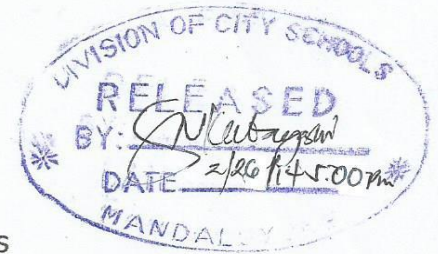 DIVISION OF CITY SCHOOLS
RELEASED
BY:
DATE 2/26/14 5:00 PM
MANDAL